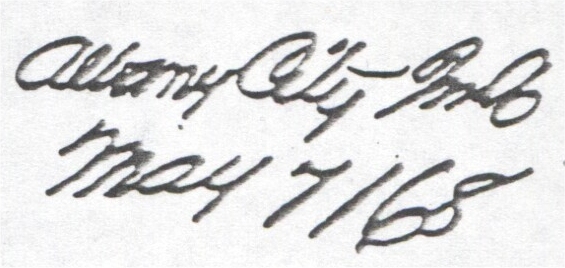 Albany City
May 7/68